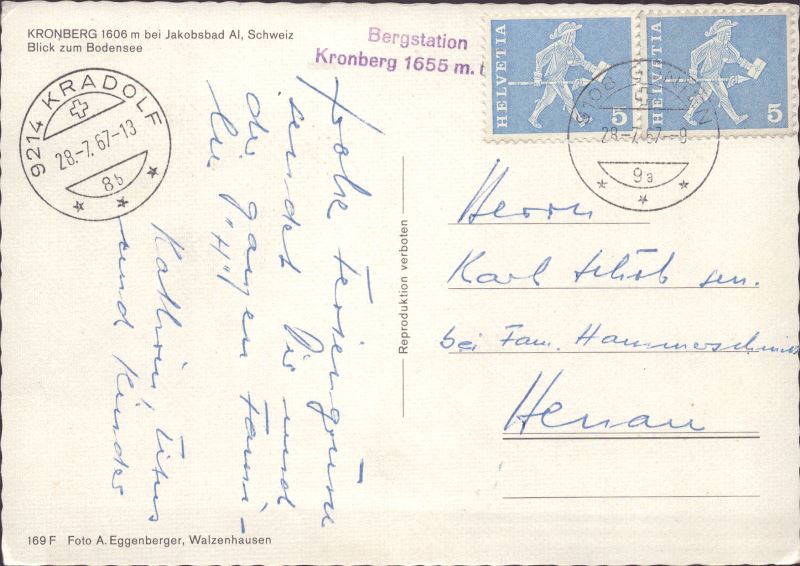 KRONBERG 1606 m bei Jakobsbad AI, Schweiz
Blick zum Bodensee
Bergstation
Kronberg 1655 m. ü
HELVETIA 5
HELVETIA 5
9214 KRADOLF
28.-7.67-13
8b
28.-7.67.-9
9a
Frohe Feriengrüsse
sendet Dir und
der ganzen Fami-
lie "H"
Kathrin, Titus
und Kinder
Reproduktion verboten
Herrn
Karl Schöb sen.
bei Fam. Hammerschmid
Henau
169 F Foto A. Eggenberger, Walzenhausen